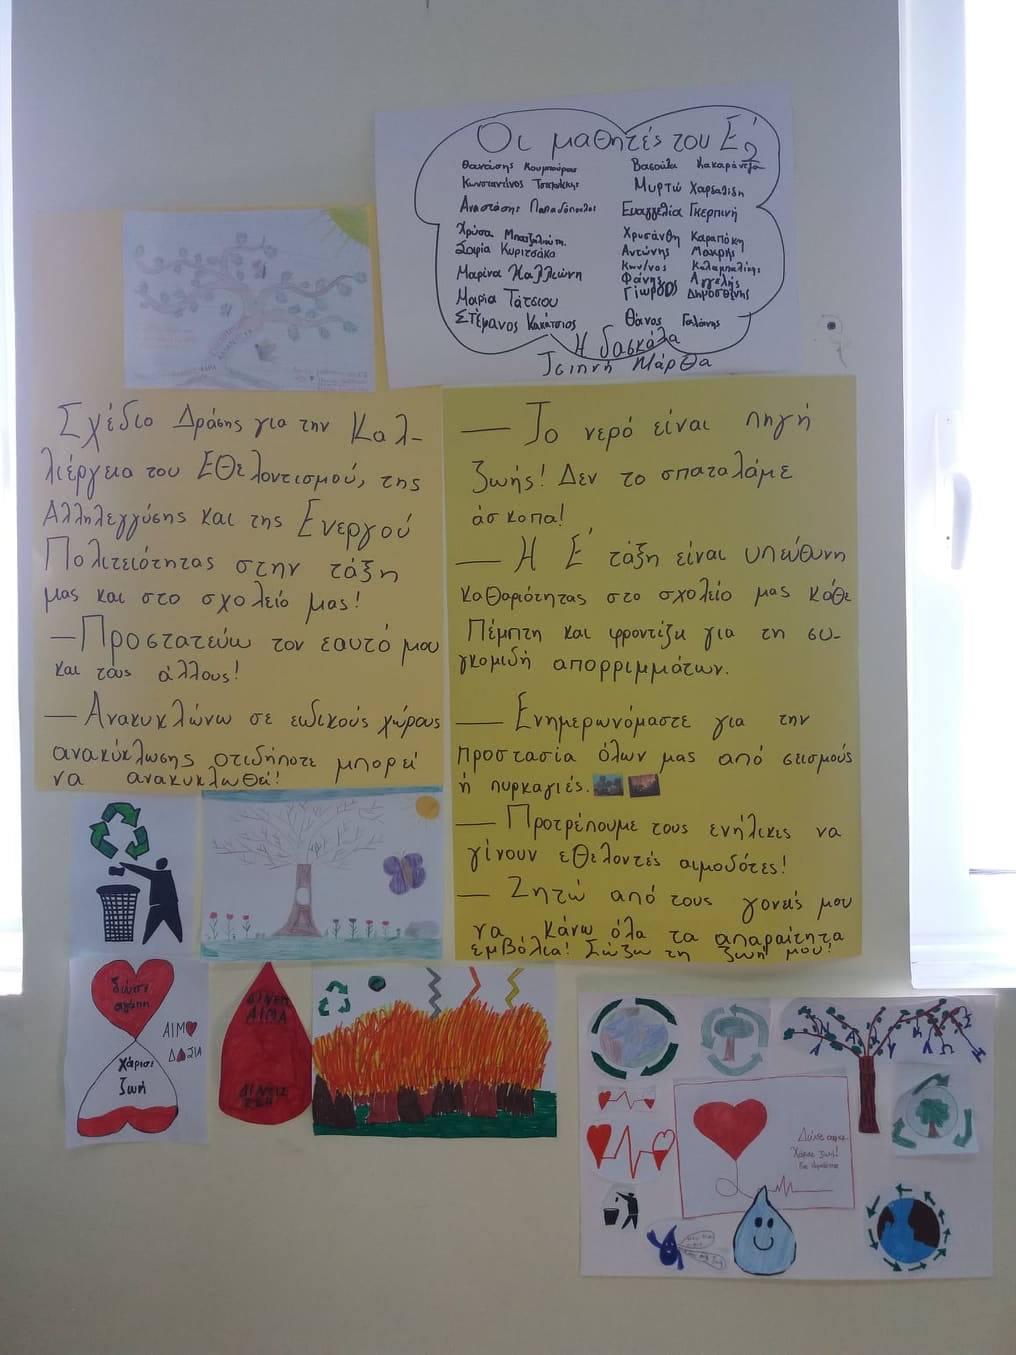 Οι μαθητές του Ε΄2
Θανάσης Κουμπούρας
Κωνσταντίνος
Αναστάσης Παπαδόπουλος
Χρύσα
Σοφία Κυριτσάκα
Μαρίνα Καλλιώνη
Μαρία Τάτσιου
Στέφανος Κακάτσιος
Βασούλα Κακαράντζα
Μυρτώ Χαρσαλίδη
Ευαγγελία Γκερπινή
Χρυσάνθη Καραπάκη
Αντώνης Μακρής
Κων/νος Καλαμπαλίκης
Φάνης Αγγελής
Γιώργος Δημοσθένης
Θάνος Γαλάνης
Η δασκάλα
Τσιπνή Μάρθα
Σχέδιο Δράσης για την Καλ-
λιέργεια του Εθελοντισμού, της
Αλληλεγγύσης και της Ενεργού
Πολιτειότητας στην τάξη
μας και στο σχολείο μας!
— Προστατεύω τον εαυτό μου
και τους άλλους!
— Ανακυκλώνω σε ειδικούς χώρους
ανακύκλωσης οτιδήποτε μπορεί
να ανακυκλωθεί!
— Το νερό είναι πηγή
ζωής! Δεν το σπαταλάμε
άσκοπα!
— Η Ε΄ τάξη είναι υπεύθυνη
καθαριότητας στο σχολείο μας κάθε
Πέμπτη και φροντίζει για τη συ-
γκομιδή απορριμμάτων.
— Ενημερωνόμαστε για την
προστασία όλων μας από σεισμούς
ή πυρκαγιές.
— Προτρέπουμε τους ενήλικες να
γίνουν εθελοντές αιμοδότες!
— Ζητώ από τους γονείς μου
να κάνω όλα τα απαραίτητα
εμβόλια! Σώζω τη ζωή μου!
δώσε
αγάπη
Χάρισε
ζωή
ΑΙΜΟ
ΔΟΣΙΑ
ΔΙΝΕΙΣ
ΑΙΜΑ
ΔΙΝΕΙΣ
ΖΩΗ
Χάρισε ζωή!